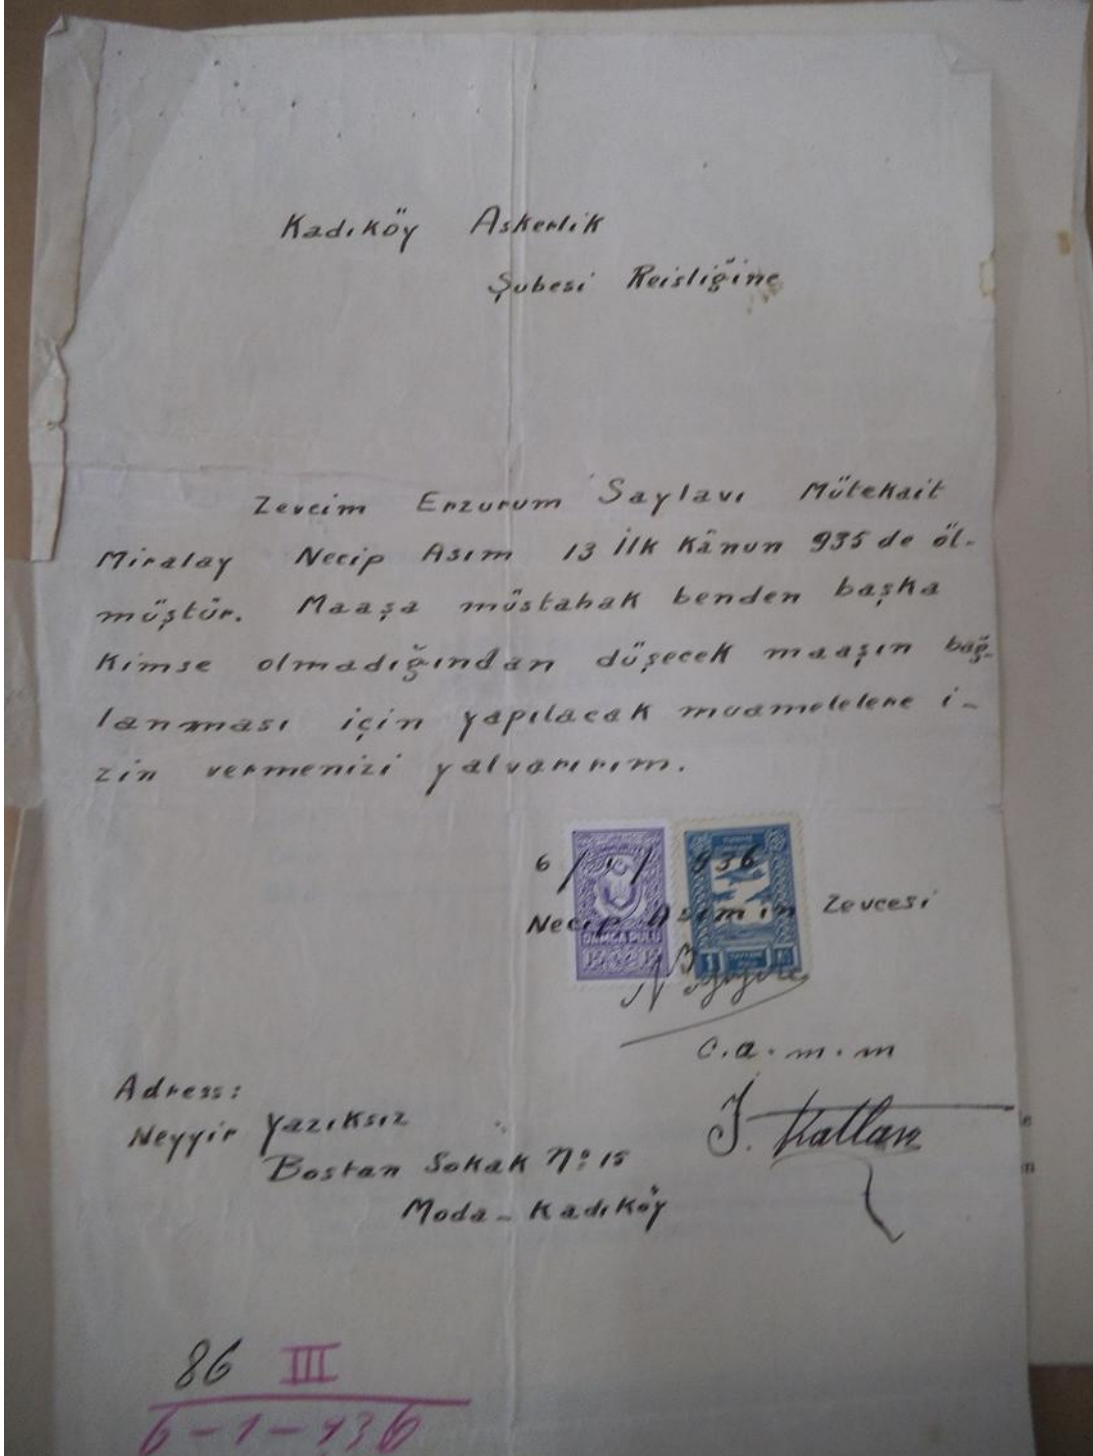 Kadıköy Askerlik
Şubesi Reisliğine
Zevcim Erzurum Saylavı Mütekait
Miralay Necip Asım 13 İlk Kânun 935 de öl-
müştür. Maaşa müstahak benden başka
kimse olmadığından düşecek maaşın bağ-
lanması için yapılacak muamelelere i-
zin vermenizi yalvarırım.
6/1/936
Necip Asımın Zevcesi
DAMGA PULU
15 15
1
C.a.m.m
Adress:
Neyyir Yazıksız
Bostan Sokak No 15
Moda - Kadıköy
86 III
6-1-936